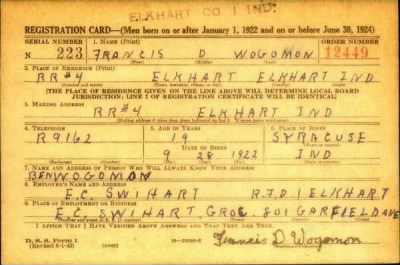 ELKHART CO 1 IND.
REGISTRATION CARD—(Men born on or after January 1, 1922 and on or before June 30, 1924)
SERIAL NUMBER 1. NAME (Print) ORDER NUMBER
N 223 FRANCIS D WOGOMON 12449
2. PLACE OF RESIDENCE (Print)
RR#4 ELKHART ELKHART IND
(THE PLACE OF RESIDENCE GIVEN ON THE LINE ABOVE WILL DETERMINE LOCAL BOARD
JURISDICTION; LINE 2 OF REGISTRATION CERTIFICATE WILL BE IDENTICAL)
3. MAILING ADDRESS
RR#4 ELKHART IND
4. TELEPHONE 5. AGE IN YEARS 6. PLACE OF BIRTH
R9162 19 SYRACUSE
9 28 1922 IND
7. NAME AND ADDRESS OF PERSON WHO WILL ALWAYS KNOW YOUR ADDRESS
BEN WOGOMON
8. EMPLOYER'S NAME AND ADDRESS
E.C. SWIHART R.F.D. 1 ELKHART
9. PLACE OF EMPLOYMENT OR BUSINESS
E.C. SWIHART, GROC. 801 GARFIELD AVE
I AFFIRM THAT I HAVE VERIFIED ABOVE ANSWERS AND THAT THEY ARE TRUE.
D. S. S. Form 1 (over) Francis D. Wogomon